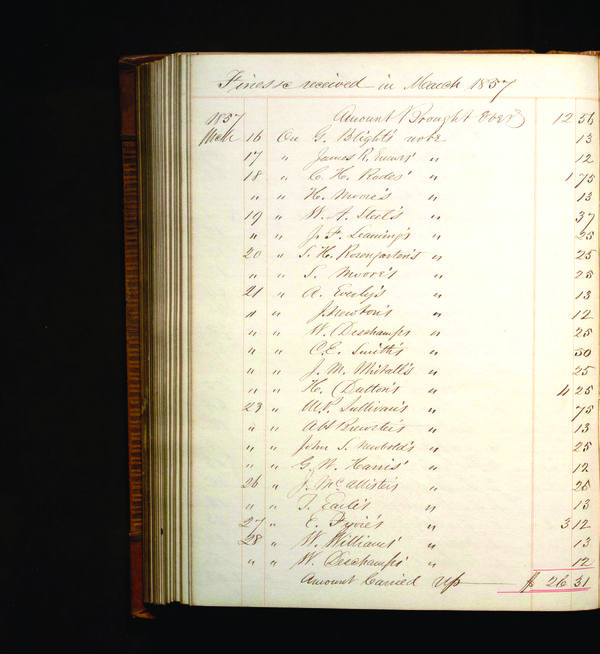 Fines &c received in March 1857
1857 Amount Brought Over 12 56
Mch 16 On G. Blight's note 13
17 " James R. " 12
18 " C. H. Rodes' " 1 75
" " H. Moore's " 13
19 " W. A. Steel's " 37
" " J. F. Leaming's " 25
20 " S. H. Rosengarten's " 25
" " S. Moore's " 25
21 " A. Everly's " 13
" " J Newton's " 12
" " W. Deschamps " 25
" " C. E. Smith's " 50
" " J. M. " 25
" " H. Dutton's " 4 25
23 " M. P. Sullivan's " 75
" " Abs Brewster's " 13
" " John S. Newbold's " 25
" " G. W. Harris' " 12
26 " J. McCallister's " 25
" " T. Earle's " 13
27 " E. Fyvie's " 3 12
28 " W. Williams' " 13
" " W. Deschamps' " 12
Amount Carried Up $ 26 31